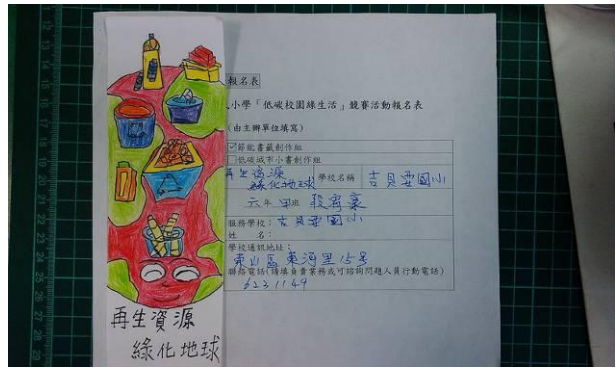 報名表
小學「低碳校園綠生活」競賽活動報名表
(由主辦單位填寫)
節能書籤創作組
低碳城市小書創作組
再生資源
綠化地球
學校名稱
吉貝耍國小
六年 甲班 段
服務學校:吉貝耍國小
姓 名:
學校通訊地址:
東山區東河里15號
聯絡電話(請填負責業務或可諮詢問題人員行動電話)
6231149
再生資源
綠化地球